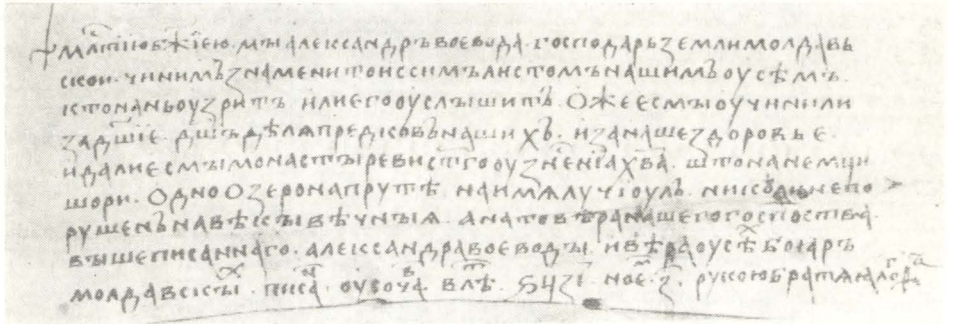 † млⷭ҇тїю бж҃їею мы алеѯандръ воевода господарь земли молдавь
скои чинимъ знаменито иссимъ листомъ нашимъ оусѣмъ
кто нань оузритъ или его оуслышитъ ѡже есмы оучинили
задш҃їе дш҃ъ дѣлѧ предковъ нашихъ и за наше здоровье
и дали есмы монастыреви ст҃го оузнесенїа хв҃а што на немци
шори одно озеро на прутѣ на имѧ лучїоулъ николи непо
рушенъ на вѣкы вѣчныѧ а на то вѣра нашего госпоства
вышеписаннаго алеѯандра воеводы и вѣра оусѣⷯ боꙗръ
молдавскыⷯ писаⷩ҇ оу сочаⷡ҇ влѣⷮ ҂ѕцзі ноеⷨ з рукою братѧ